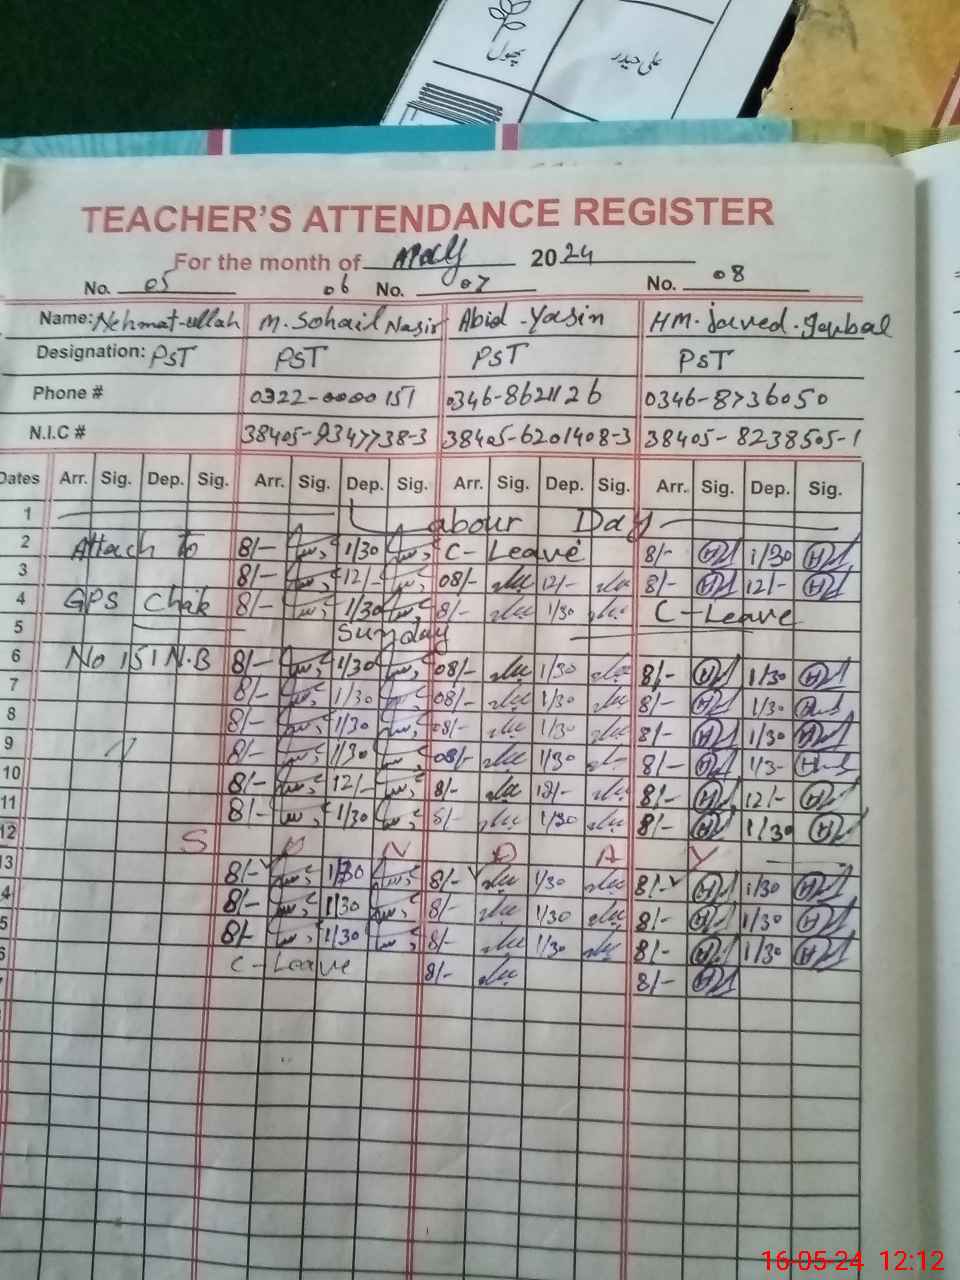 پھول علی حیدر
TEACHER'S ATTENDANCE REGISTER
For the month of May 2024
No. 05 06 No. 07 No. 08
Name: Nehmat-ullah M. Sohail Nasir Abid-Yasin HM. Javed.
Designation: PST PST PST PST
Phone # 0322-0000151 0346-8621126 0346-8736050
N.I.C # 38405-9347738-3 38405-6201408-3 38405-8238505-1
Dates Arr. Sig. Dep. Sig. Arr. Sig. Dep. Sig. Arr. Sig. Dep. Sig. Arr. Sig. Dep. Sig.
1 Labour Day
2 Attach To 8/- 1/30 C-Leave 8/- 1/30
3 8/- 12/- 08/- 12/- 8/- 12/-
4 GPS Chak 8/- 1/30 8/- 1/30 C-Leave
5 Sunday
6 No 151 N.B 8/- 1/30 08/- 1/30 8/- 1/30
7 8/- 1/30 08/- 1/30 8/- 1/30
8 8/- 1/30 08/- 1/30 8/- 1/30
9 8/- 1/30 08/- 1/30 8/- 1/3-
10 8/- 12/- 8/- 12/- 8/- 12/-
11 8/- 1/30 8/- 1/30 8/- 1/30
12 S U N D A Y
13 8/- 1/30 8/- 1/30 8/- 1/30
4 8/- 1/30 8/- 1/30 8/- 1/30
5 8/- 1/30 8/- 1/30 8/- 1/30
6 C-Leave 8/- 8/-
16-05-24 12:12